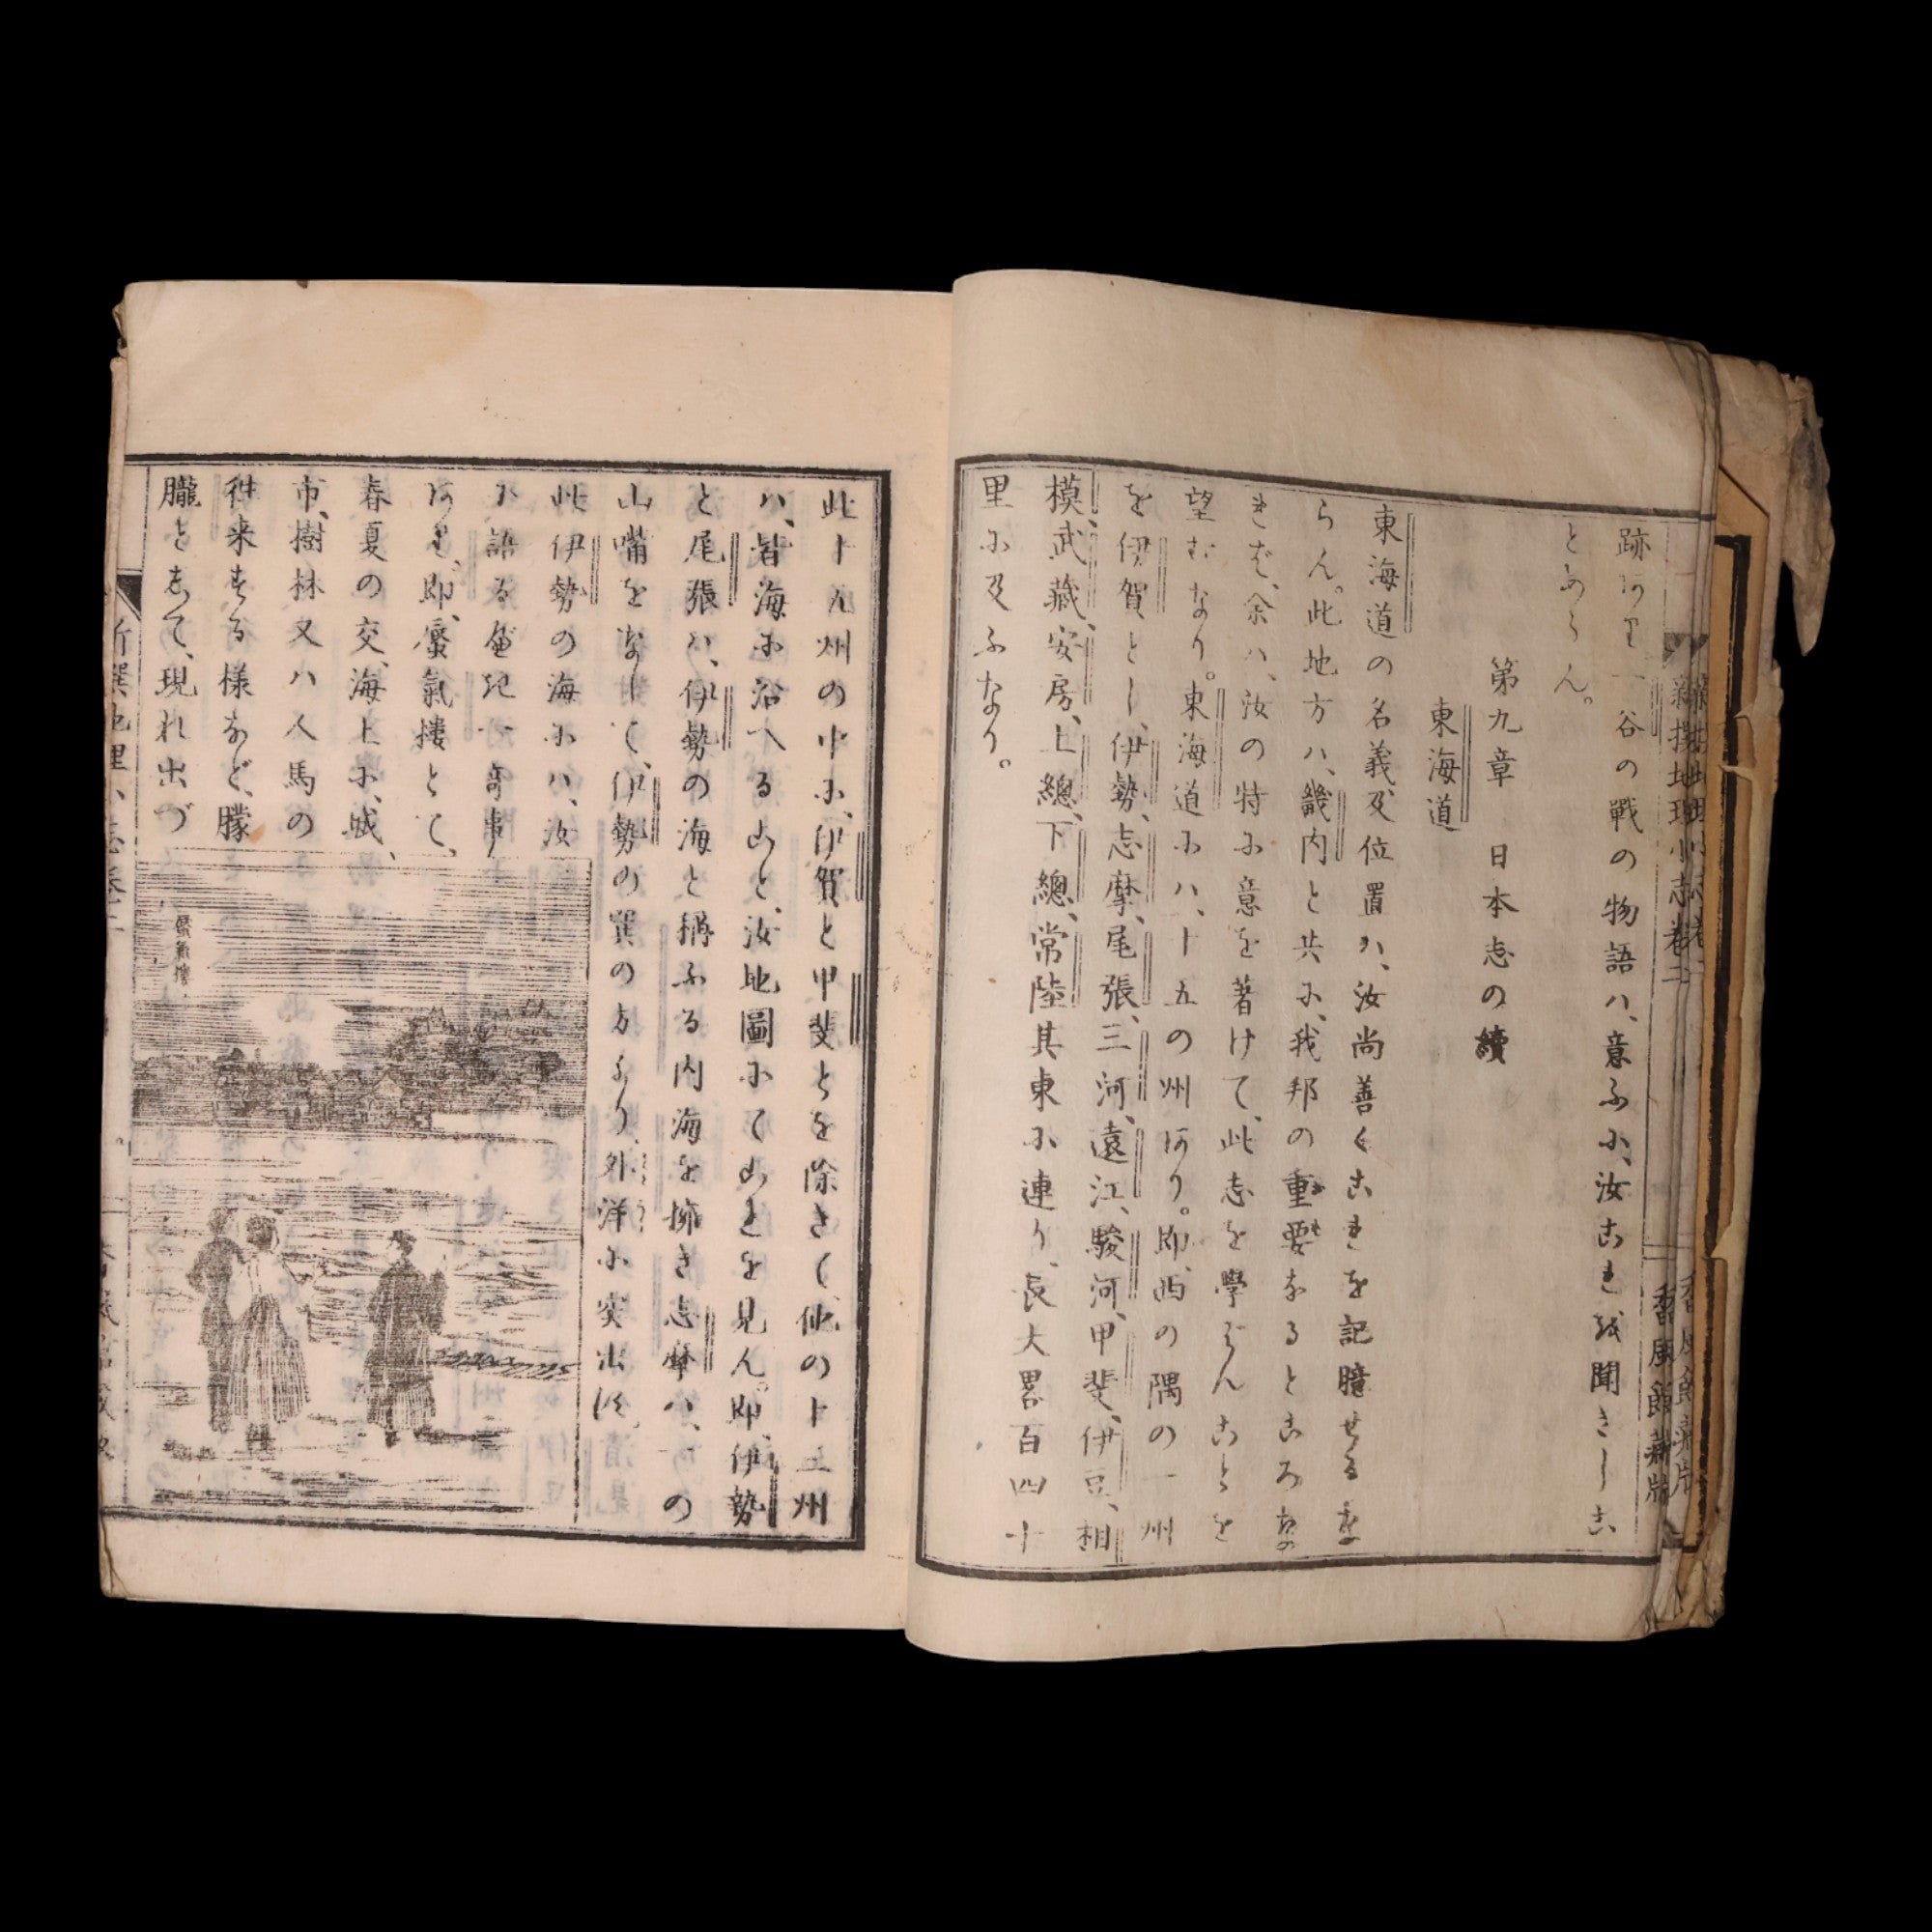 跡あり一谷の戰の物語ハ、意ふに、汝これを聞きしこ
とあらん。
第九章　日本志の續
東海道
東海道の名義及位置ハ、汝尚善くこれを記臆せるな
らん。此地方ハ、畿内と共に、我邦の重要なるところな
れば、余ハ、汝の特に意を著けて、此志を學ばんことを
望むなり。東海道にハ、十五の州あり。即、西の隅の一州
を伊賀とし、伊勢、志摩、尾張、三河、遠江、駿河、甲斐、伊豆、相
模、武藏、安房、上總、下總、常陸其東に連り、長大畧百四十
里に及ふなり。
此十五州の中に、伊賀と甲斐とを除きて、他の十三州
ハ、皆海に沿へること、汝地圖にてこれを見ん。即、伊勢
と尾張ハ、伊勢の海と稱ふる内海を擁き志摩ハ、の
山嘴をなして、伊勢の巽の方より、外洋に突出す。
此伊勢の海にハ、汝
に語るべき一奇事
あり、即、蜃氣樓とて、
春夏の交、海上に、城、
市、樹林又ハ人馬の
徃来する様など、朦
朧として、現れ出づ
蜃氣樓
新撰地理小志卷二
香風館藏版